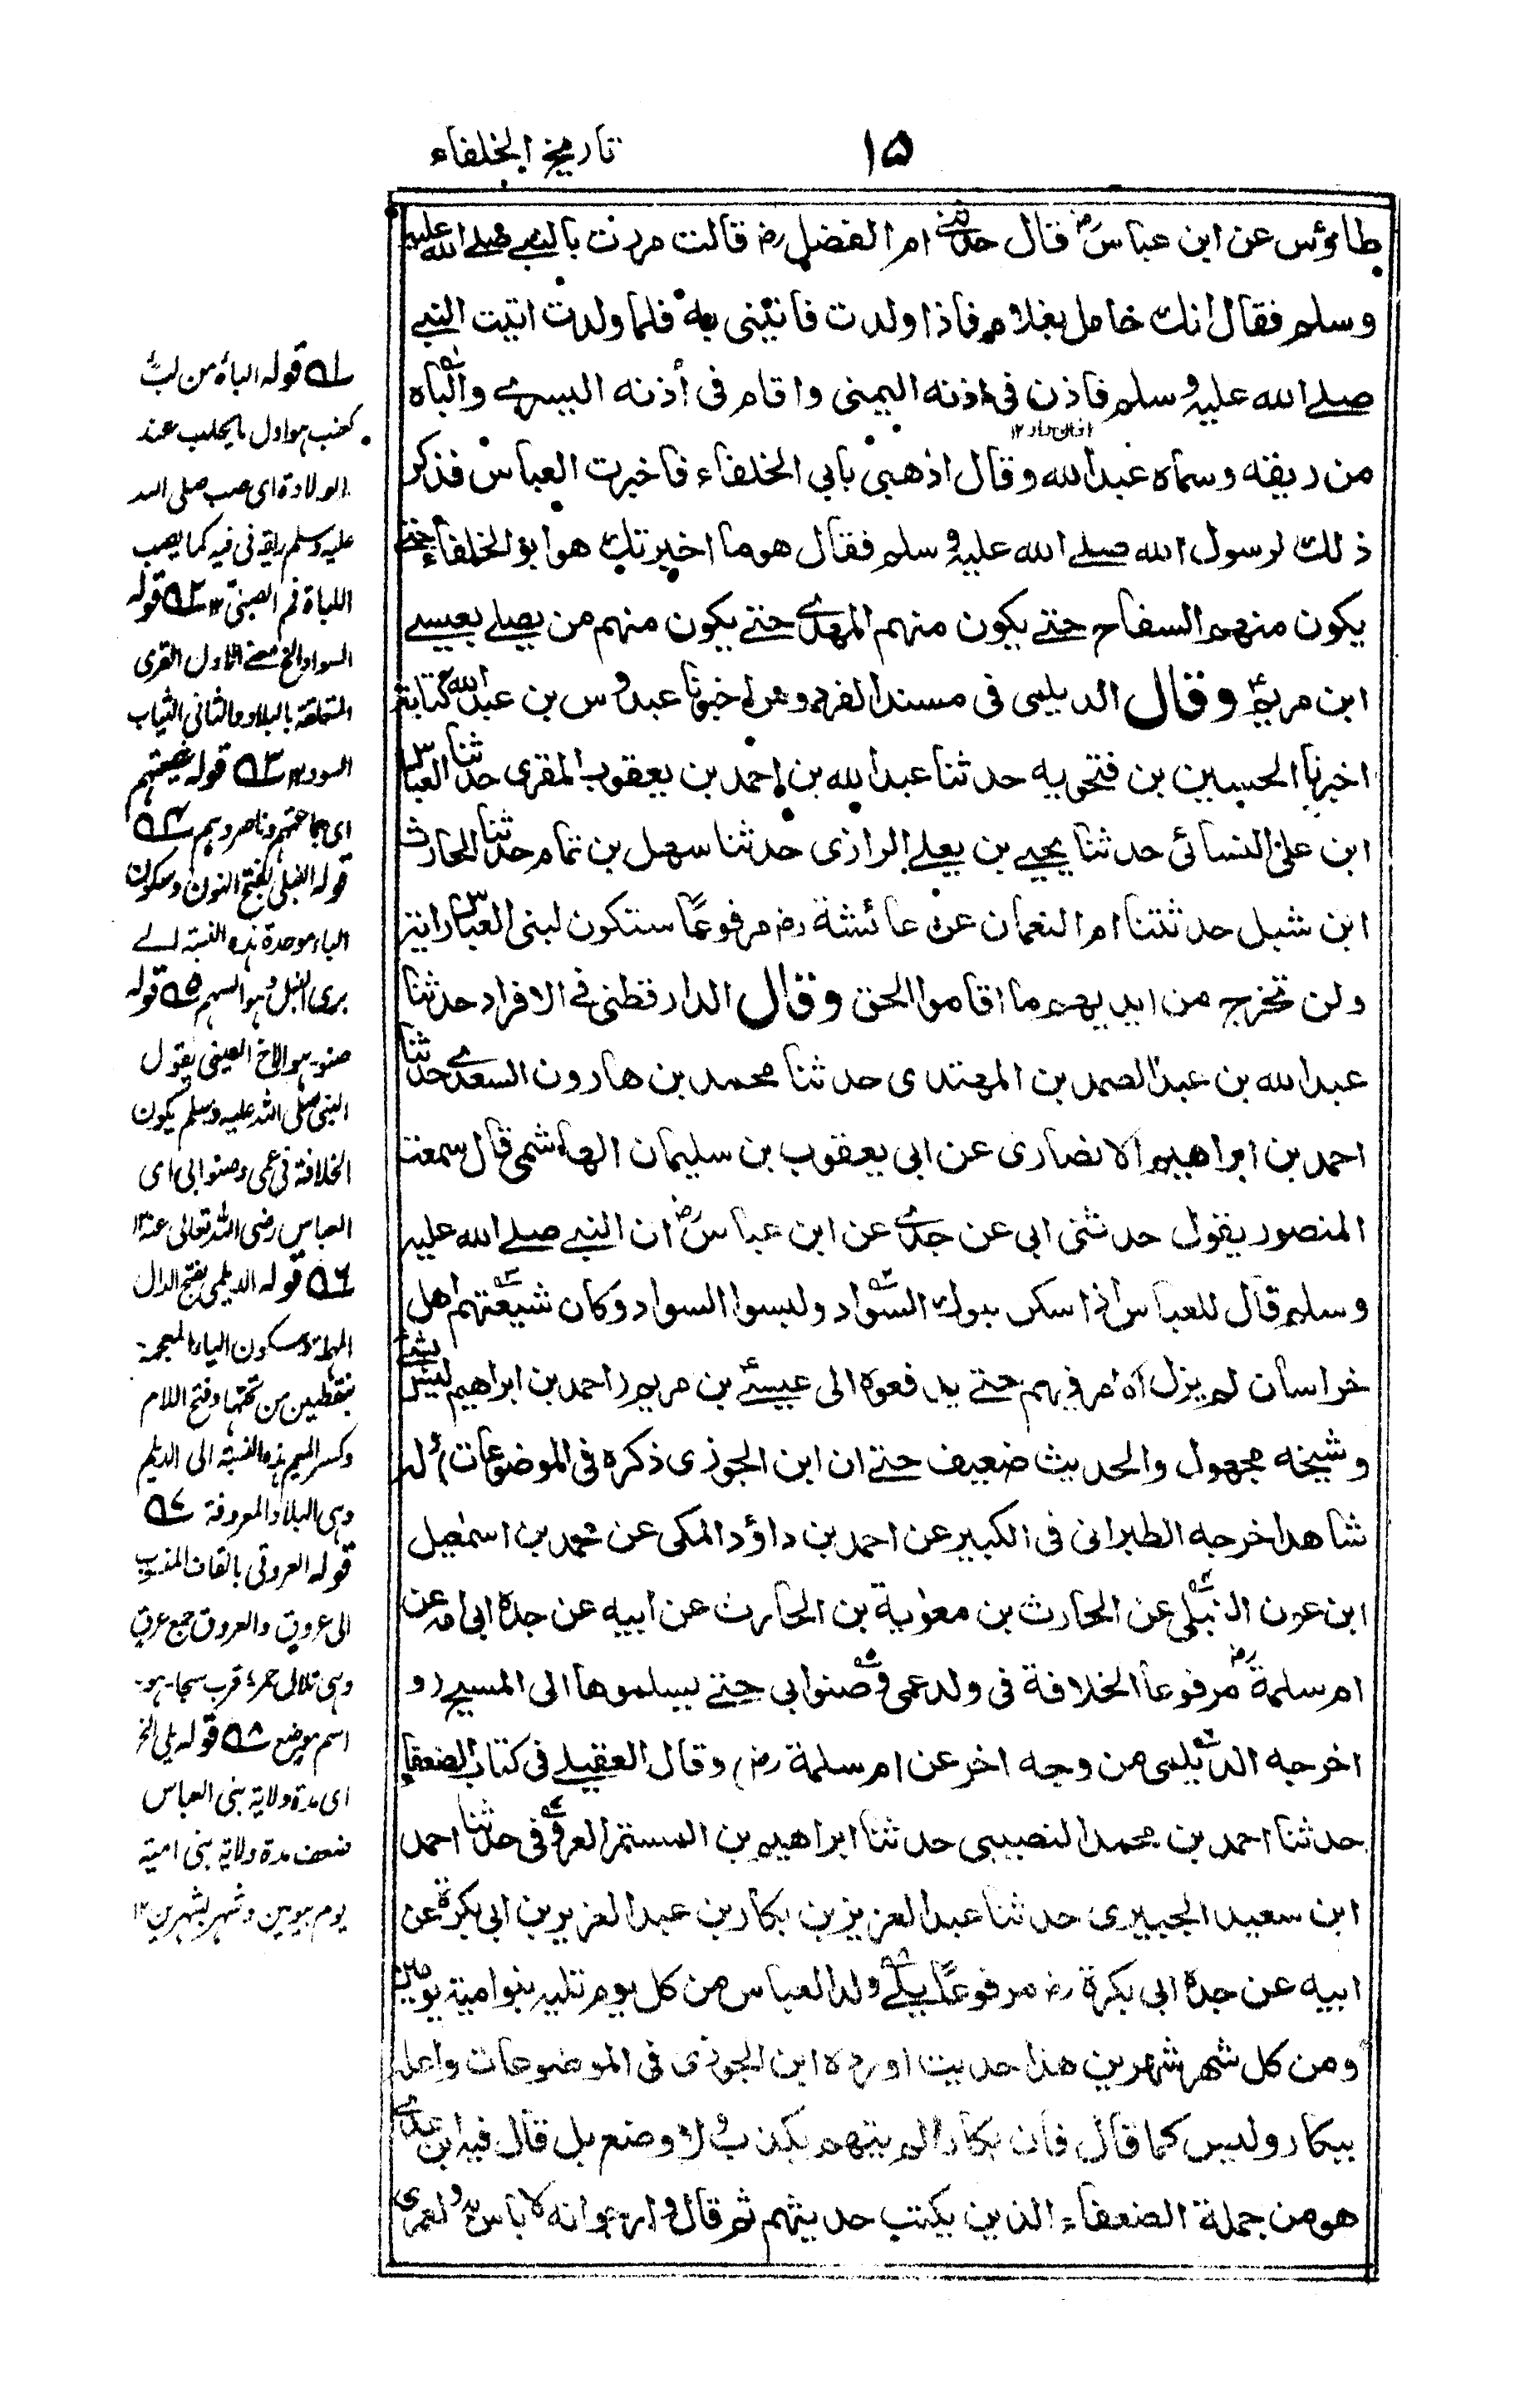 تاريخ الخلفاء
۱۵
طاؤس عن ابن عباس رض قال حدثتني ام الفضل رض قالت مررت بالنبي صلے الله عليه
وسلم فقال انك حامل بغلام فاذا ولدت فاتيني به فلما ولدت اتيت النبي
صلے الله عليه وسلم فاذن في اذنه اليمنى واقام في أذنه اليسرے والباه
من ريقه وسماه عبد الله وقال اذهبي بابي الخلفاء فاخبرت العباس فذكر
ذلك لرسول الله صلے الله عليه وسلم فقال هو ما اخبرتك هو ابو الخلفاء حتے
يكون منهم السفاح حتے يكون منهم المهدے حتے يكون منهم من يصلے بعيسے
ابن مريم ع وقال الديلمي في مسند الفردوس اخبرنا عبدوس بن عبد الله كتابة
اخبرنا الحسين بن فتحويه حدثنا عبد الله بن احمد بن يعقوب المقرى حدثنا العباس
ابن على النسائي حدثنا يحيے بن يعلے الرازى حدثنا سهل بن تمام حدثنا الحارث
ابن شبل حدثتنا ام النعمان عن عائشة رض مرفوعًا ستكون لبني العباس راية
ولن تخرج من ايديهم ما اقاموا الحق وقال الدارقطني في الافراد حدثنا
عبد الله بن عبد الصمد بن المهتدى حدثنا محمد بن هارون السعدے حدثنا
احمد بن ابراهيم الانصارى عن ابي يعقوب بن سليمان الهاشمي قال سمعت
المنصور يقول حدثني ابي عن جدے عن ابن عباس رض ان النبي صلے الله عليه
وسلم قال للعباس اذا سكن بنوك السواد ولبسوا السواد وكان شيعتهم اهل
خراسان لم يزل الامر فيهم حتے يدفعوه الى عيسے بن مريم احمد بن ابراهيم ليس بشئ
وشيخه مجهول والحديث ضعيف حتے ان ابن الجوزى ذكره في الموضوعات وله
شاهد اخرجه الطبراني في الكبير عن احمد بن داؤد المكي عن محمد بن اسمعيل
ابن عون النبلي عن الحارث بن معوية بن الحارث عن ابيه عن جده ابي امه عن
ام سلمة رض مرفوعا الخلافة في ولد عمي وصنو ابي حتے يسلموها الى المسيح (و
اخرجه الديلمي من وجه اخر عن ام سلمة رض) وقال العقيلے في كتاب الضعفاء
حدثنا احمد بن محمد النصيبي حدثنا ابراهيم بن المستمر العروقي حدثنا احمد
ابن سعيد الجبيرى حدثنا عبد العزيز بن بكار بن عبد العزيز بن ابي بكرة عن
ابيه عن جده ابي بكرة رض مرفوعًا يلے ولد العباس من كل يوم تليه بنو امية يومين
ومن كل شهر شهرين هذا حديث اورده ابن الجوزى في الموضوعات واعله
ببكار وليس كما قال فان بكارا لم يتهم بكذب ولا وضع بل قال فيه ابن عدے
هو من جملة الضعفاء الذين يكتب حديثهم ثم قال وارجو انه لا باس به ولعمري
اذان داد ۱۲
۱ قوله الباه من لبأ
كعنب هو اول ما يحلب عند
الولادة اى صب صلى الله
عليه وسلم ريقه في فيه كما يصب
اللباة فم الصبي ۱۲ ۲ قوله
السواد الخ معنے الاول القرى
المتعلقة بالبلاد والثاني الثياب
السود ۱۲ ۳ قوله شيعتهم
اى جماعتهم وناصروهم ۴
قوله النبلي بفتح النون وسكون
الباء موحدة هذه النسبة الے
برى النبل وهو السهم ۵ قوله
صنو هو الاخ العيني يقول
النبي صلى الله عليه وسلم يكون
الخلافة في عمي وصنو ابي اى
العباس رضي الله تعالى عنه ۱۲
۶ قوله الديلمي بفتح الدال
المهملة وسكون الياء المعجمة
بنقطتين من تحتها وفتح اللام
وكسر الميم هذه النسبة الى الديلم
وهي البلاد المعروفة ۷
قوله العروقي بالقاف المنسوب
الى عروق والعروق جمع عرق
وهي تلال حمر قرب سجا هو
اسم موضع ۸ قوله يلي الخ
اى مدة ولاية بني العباس
ضعف مدة ولاية بني امية
يوم بيومين وشهر بشهرين ۱۲